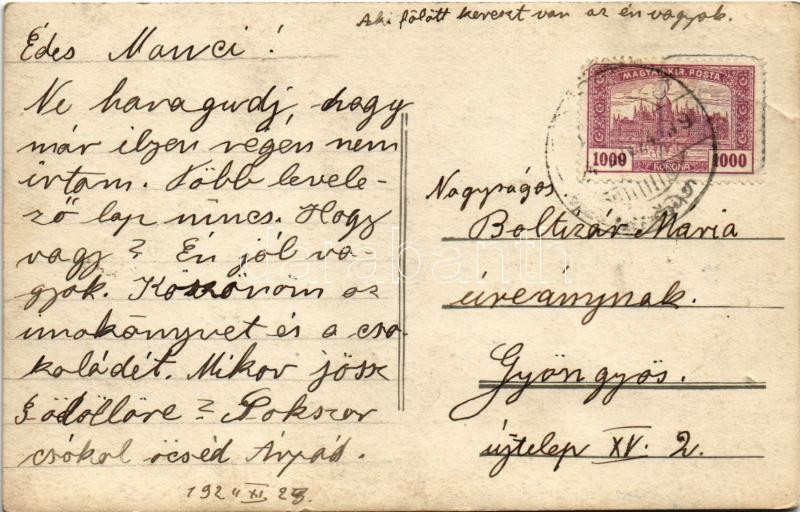 Aki fölött kereszt van az én vagyok.
Édes Manci!
Ne haragudj, hogy
már ilyen régen nem
írtam. Több levele-
ző lap nincs. Hogy
vagy? Én jól va-
gyok. Köszönöm az
imakönyvet és a cso-
koládét. Mikor jössz
Gödöllőre? Sokszor
csókol öcséd Árpád.
1924 XI. 23.
MAGYAR KIR. POSTA
1000 KORONA 1000
Nagyságos
Boltizár Maria
úrleánynak.
Gyöngyös.
újtelep XV. 2.
darabanth